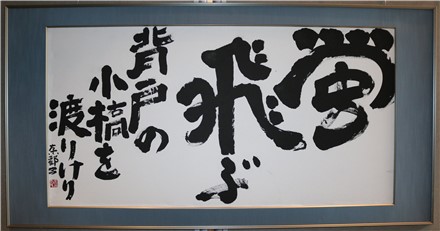 蛍
飛ぶ
背戸の
小橋を
渡りけり